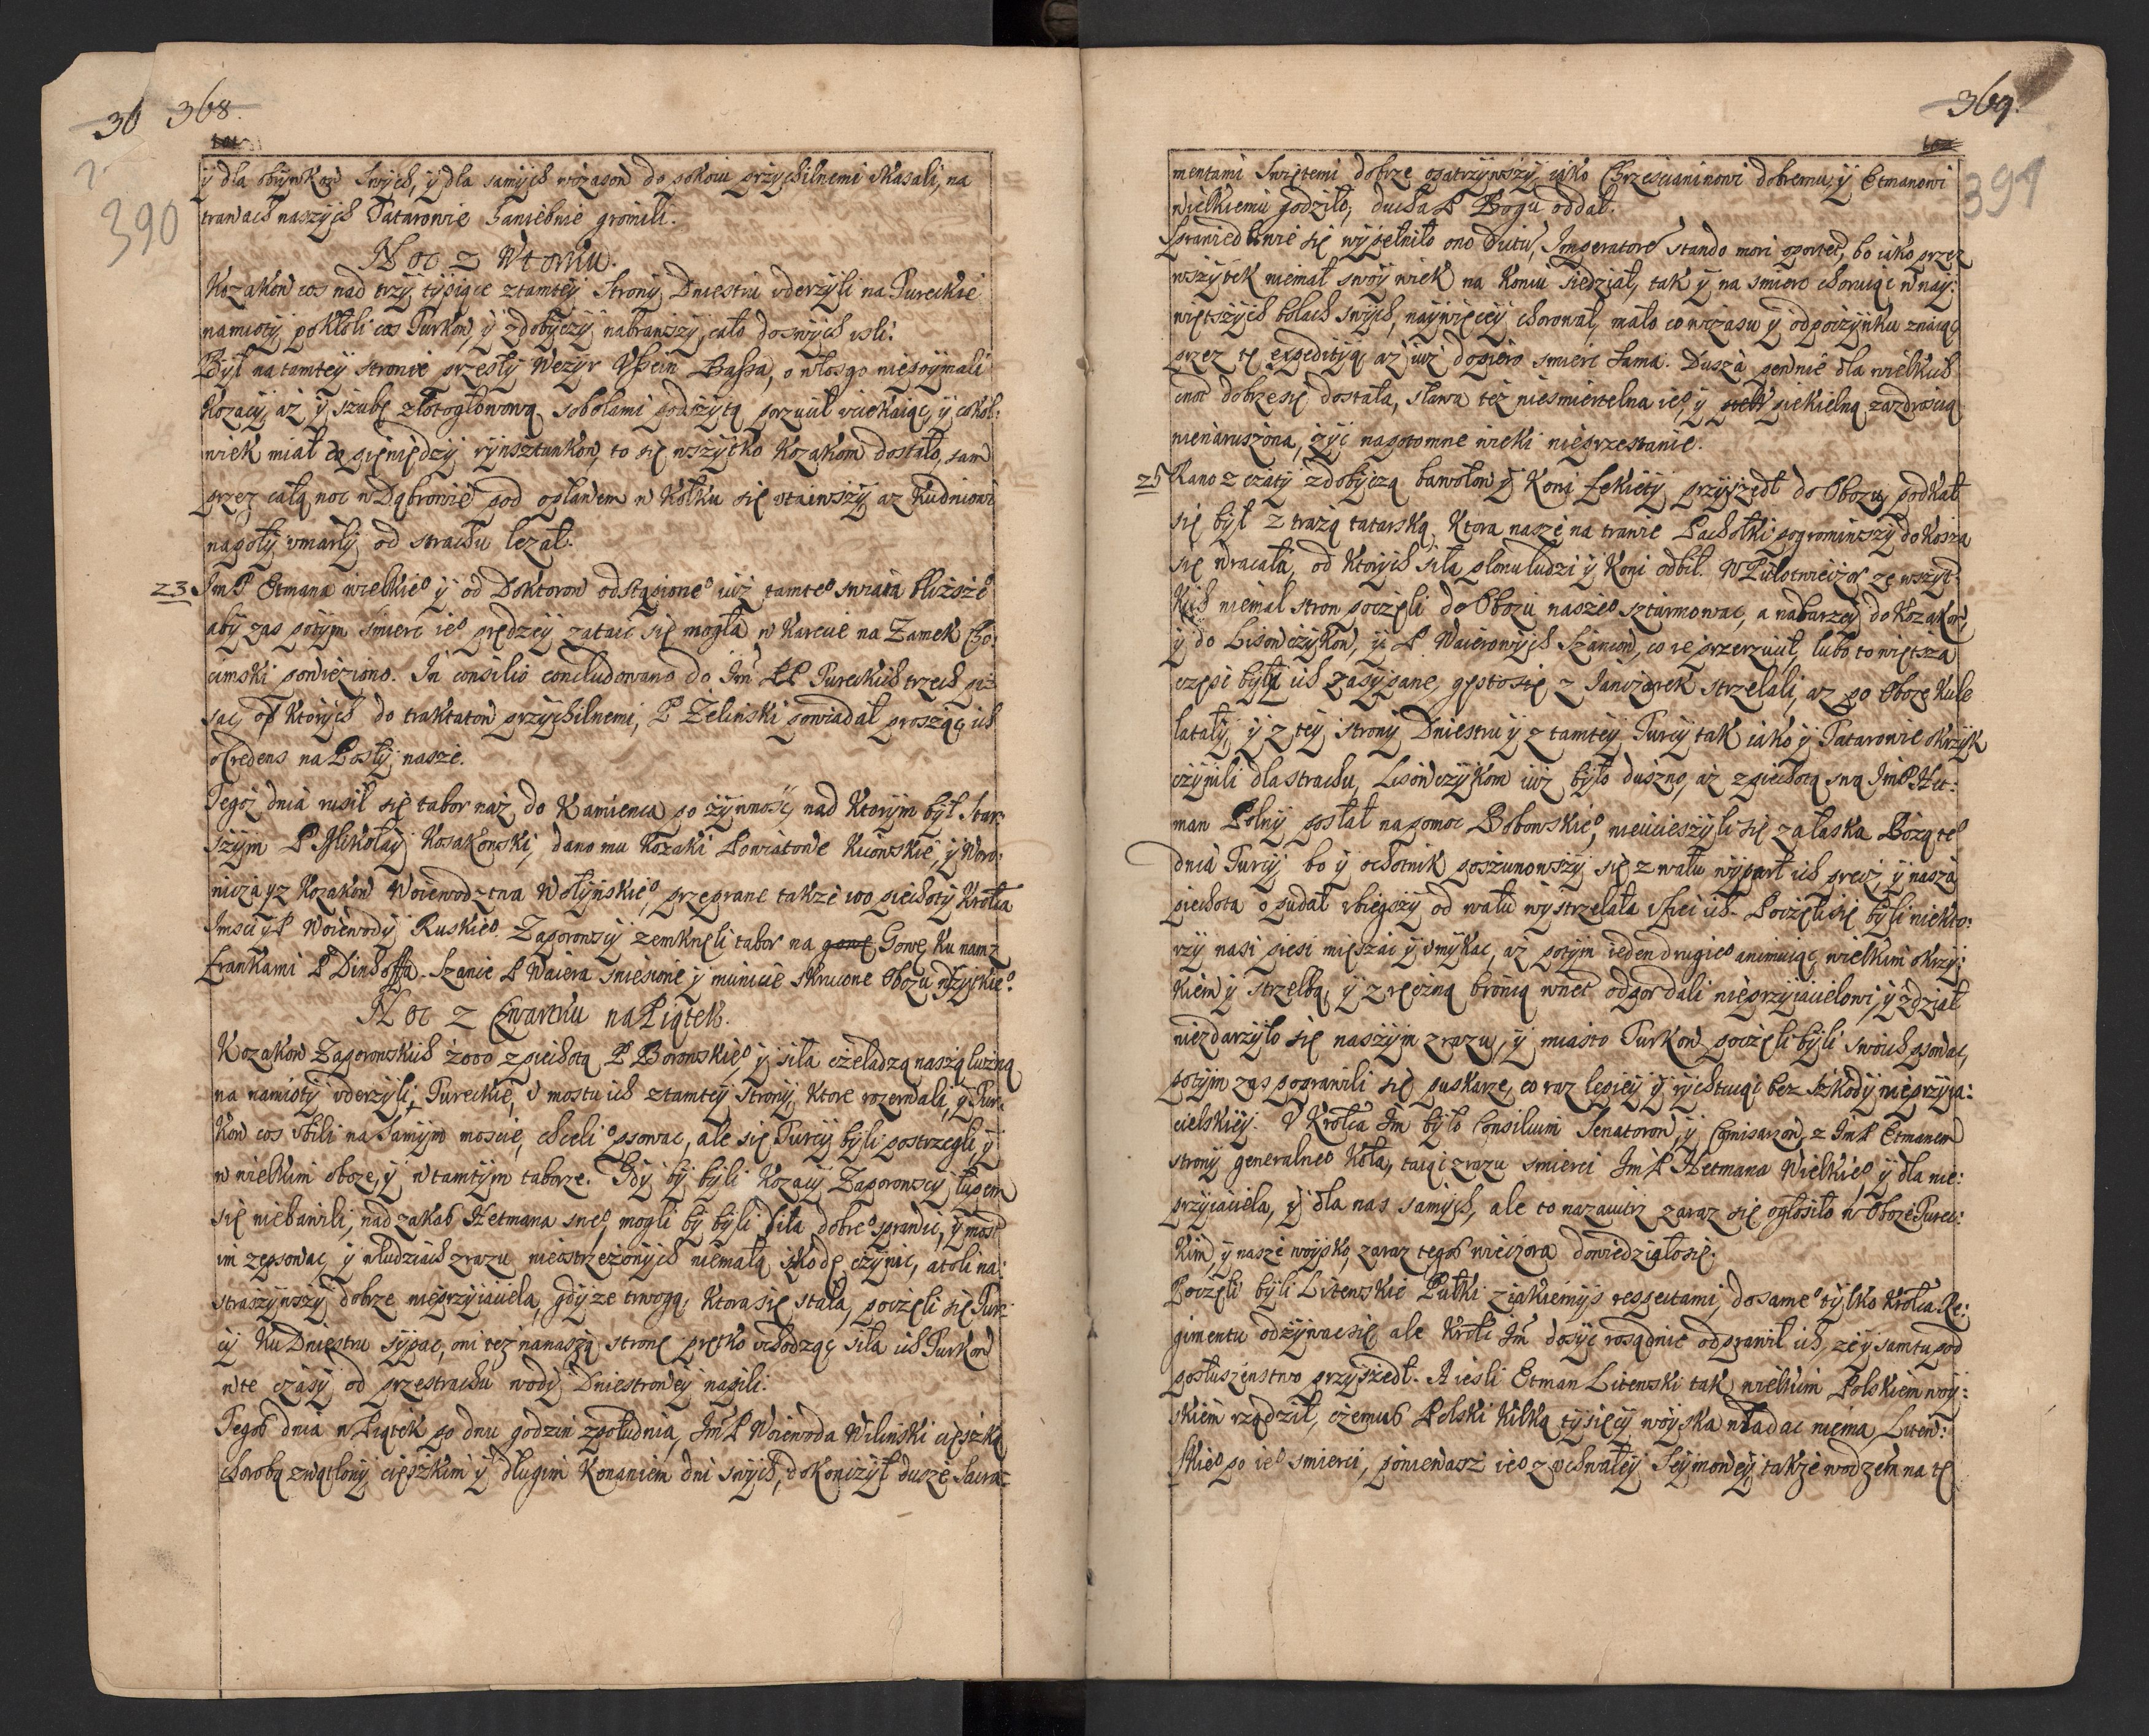 36 368.
390
ÿ dla obÿwkow Swÿch, ÿ dla samÿch wczasow do pokoiu przÿchilnemi skasali, na
trawach naszÿch Tatarowie haniebnie gromili.
Noc z Wtorku.
Kozakow cos nad trzÿ tÿsiące ztamteÿ Stronÿ Dniestru vderzÿli na Tureckie
namiotÿ pokłoli cos Turkow, ÿ zdobÿczÿ nabrawszÿ cało doswÿch vsli.
Bÿł na tamteÿ stronie przeszłÿ Wezÿr Vssein Bassa, o włos go niepoÿmali
Kozacÿ, aż ÿ szubę złotogłowową sobolami podszÿtą porzucił vciekaiąc, ÿ cokol:
wiek miał pieniędzÿ rÿnsztunkow, to się wszÿtko Kozakom dostało, sam
przez całą noc w Dąbrowie pod opławem w Kołku się vtaiwszÿ az Kudniowi
napołÿ vmarłÿ od strachu lezał.
23. Im P Etmana wielkieº ÿ od Doktorow odstąpioneº iuż tamteº swiata bliższeº
abÿ zas potÿm smierc ieº prędzeÿ zataic się mogła w Karecie na Zamek Cho:
cimski powieziono. In consilio concludowano do Im PP Tureckich trzech pi:
sac, od ktorÿch do traktatow przÿchilnemi, P Zelinski powiadał prosząc ich
o Credens na Posłÿ nasze.
Tegoż dnia rusił się tabor naż do Kamienca po żÿwnosć, nad ktorÿm bÿł Star:
szÿm P Mikołaÿ Kosakowski, dano mu Kozaki Powiatowe Kiiowskie, ÿ Wero:
nicza ÿz Kozakow Woiewodztwa Wołÿnskieº, przebrane także 100 piechotÿ Krola
Imsci ÿ P Woiewodÿ Ruskieº. Zaporowscÿ zemknęli tabor na Gowę, Ku nam z
frankami P Dinhoffa. Szance P Waiera zniesione ÿ municie skrucone Obozu wszÿskieº.
Noc z Czwartku na Piątek.
Kozakow Zaporowskich 2000 z piechotą P Borowskieº, ÿ siła czeladzą naszą luzną
na namiotÿ vderzÿli Tureckie, V mostu ich ztamteÿ Stronÿ, Ktore rozerwali, ÿ Tur:
kow cos vbili na Samÿm moscie, chcieliº psowac, ale się Turcÿ bÿli postrzegli, ÿ
w wielkim obozie, ÿ w tamtÿm taborze. Gdÿ bÿ bÿli Kozacÿ Zaporowscÿ łupem
się niebawili, nad zakaz Hetmana sweº, mogli bÿ bÿli siła dobreº sprawic, ÿ most
im zepsowac, ÿ wludziach zrazu nieostrzeżonÿch niemałą szkodę czÿnic, atoli na:
straszÿwszÿ dobrze nieprzÿiaciela, gdÿ ze trwogą, ktora się stała, poczęli się Tur:
cÿ Ku Dniestru sÿpac, oni tez nanaszą stronę prętko vchodząc siła ich Turkow
w te czasÿ od przestrachu wodÿ Dniestroweÿ napili.
Tegoż dnia w Piątek po dwu godzin zpołudnia, Im P Woiewoda Wilinski cięszką
chorobą zwątlonÿ cięszkim ÿ długim Konaniem dni swÿch, dokonczÿł duszę Sacra:
369.
391
mentami Swiętemi dobrze opatrzÿwszÿ, iako Chrzescianinowi dobremu, ÿ Etmanowi
wielkiemu godziło, ducha P Bogu oddał.
Sprawiedliwie się wÿpełniło ono Dictu, Imperatore stando mori oportet, bo iako przez
wszÿtek niemal swoÿ wiek na Koniu siedział, tak ÿ na smierc choruiąc w naÿ:
więtszÿch bolach swÿch, naÿwięceÿ chorował, mało co wczasu ÿ odpoczÿnku znaiąc
przez tę expeditią, aż iuż dopiero smierc sama. Dusza pewnie dla wielkich
cnot dobrze się dostała, sława też niesmiertelna ieº, ÿ piekielną zazdroscią
nienaruszona, żÿć napotomne wieki nieprzestanie.
25 Rano z czatÿ zdobÿczą bawołow ÿ Koni Fekietÿ przÿszedł do Obozu, podkał
się bÿł z strażą tatarską, Ktora nasze na trawie Pachołki pogromiwszÿ do kosza
się wracała, od Ktorÿch siła plonu ludzi ÿ Koni odbił. W Pułotwieczor ze wszÿt:
kich niemal stron poczęli do Obozu naszeº szturmowac, a nabarzeÿ do Kozakow,
ÿ do Lisowczÿkow, ÿ P. Waierowÿch Szancow, co ie przerzucił, lubo to więtsza
częsc bÿłÿ ich zasÿpane, gęsto się z Janiczarek strzelali, az po Oboze Kule
latałÿ, ÿ z teÿ stronÿ Dniestru ÿ z tamteÿ Turcÿ tak iako ÿ Tatarowie okrzÿk
czÿnili dla strachu, Lisowczÿkom iuż bÿło duszno, aż z piechotą swą Im P Het:
man Polnÿ posłał napomoc Bobowskieº, nieucieszÿli się załaska Bożą teº
dnia Turcÿ, bo ÿ ochotnik poszunowszÿ się z wału wÿparł ich precz, ÿ nasza
piechota opudał vbiegszÿ od wału wÿstrzelała ich. Poczęli się bÿli niekto:
rzÿ nasi piesi mięszac ÿ vmÿkac, aż potÿm ieden drugieº animuiąc, wielkim okrzÿ:
kiem ÿ strzelbą, ÿ z ręczną bronią wnet odpor dali nieprzÿiacielowi, ÿ z dział
niezdarzÿło się naszÿm zrazu, ÿ miasto Turkow poczęli bÿli swoich psowac,
potÿm zas poprawili się puskarze, co raz lepieÿ ÿ rÿchtuiąc bez szkodÿ nieprzÿia:
cielskieÿ. V Krola Im bÿło Consilium Senatorow, ÿ Comisarzow, z Im P Etmanem
stronÿ generalneº Koła, taiąc zrazu smierci Im P Hetmana Wielkieº, ÿ dla nie:
przÿiaciela, ÿ dla nas samÿch, ale to nazaiutrz zaraz się ogłosiło w Obozie Turec:
kim, ÿ nasze woÿsko, zaraz tegoż wieczora dowiedziało się.
Poczęli bÿli Litewskie Pułki z iakiemÿs respectami, do sameº tÿlko Krola Re:
gimentu odzÿwac się, ale Krol Im dosÿc rosądnie odprawił ich, ze ÿ sam tu pod
posłuszenstwo przÿszedł. A iesli Etman Litewski tak wielkim Polskiem woÿ:
skiem rządził, czemuż Polski kilką tÿsięcÿ woÿska władac niema, Litew:
skieº po ieº smierci, poniewasz ieº z vchwałeÿ Seÿmoweÿ także wodzem na tę